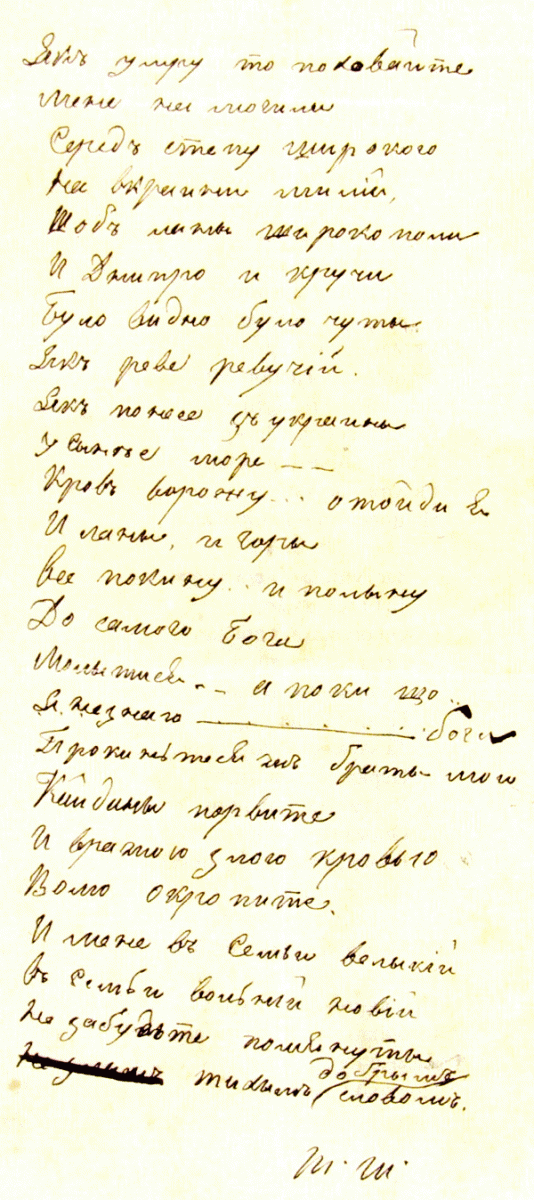 Якъ умру то поховайте
Мене на могили
Середъ степу широкого
На вкраини милій,
Щобъ ланы широкополи
И Днипро и кручи
Було видно було чуты.
Якъ реве ревучій.
Якъ понесе зъ украины
У сынѣе море
Кровъ ворожу... отойди я
И ланы, и горы
Все покину.. и полыну
До самого Бога
Молытися.. а поки що..
Я незнаю бога
Прокиньтеся жъ браты мои
Кайданы порвите
И вражою злого кровью
Волю окропите.
И мене въ семьи велыкій
Въ семьи вольній новій
Не забудьте помянуты
тихымъ добрымъ словомъ.
Т. Ш.